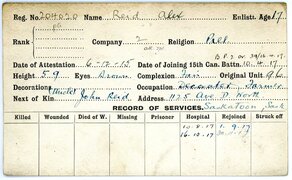 Reg. No. 204020 Name Reid Alex Enlistt. Age 17
Rank Company 2 Religion Pres.
B.P.2 or 29/12-17.
Date of Attestation 6-12-15 Date of Joining 15th Can. Battn. 10.4.17.
Height 5-9 Eyes Brown Complexion Fair Original Unit 96
Decoration Occupation Farmer
Next of Kin (Uncle) John Reid Address 1125 Ave D North
Saskatoon, Sask
RECORD OF SERVICES.
Killed Wounded Died of W. Missing Prisoner Hospital Rejoined Struck off
10-8-17 1.9.17
16-12-17